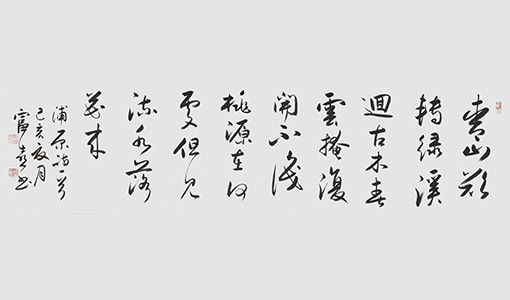 青山欲
轉緑溪
迴古木春
雲掩復
開不識
桃源在何
處但見
流水落
花来
浦原詩一首
己亥夏月
书